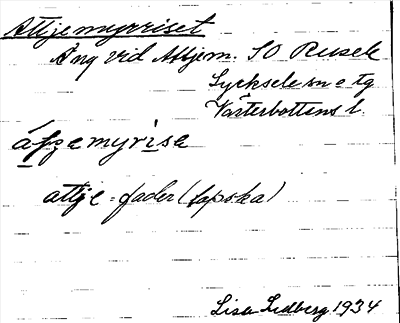 Attjemyrriset
Äng vid Attjem. SO Rusele
Lycksele sn o tg
Västerbottens l.
áʃʒemyrisə
attje = fader (lapska)
Lisa Lidberg 1934